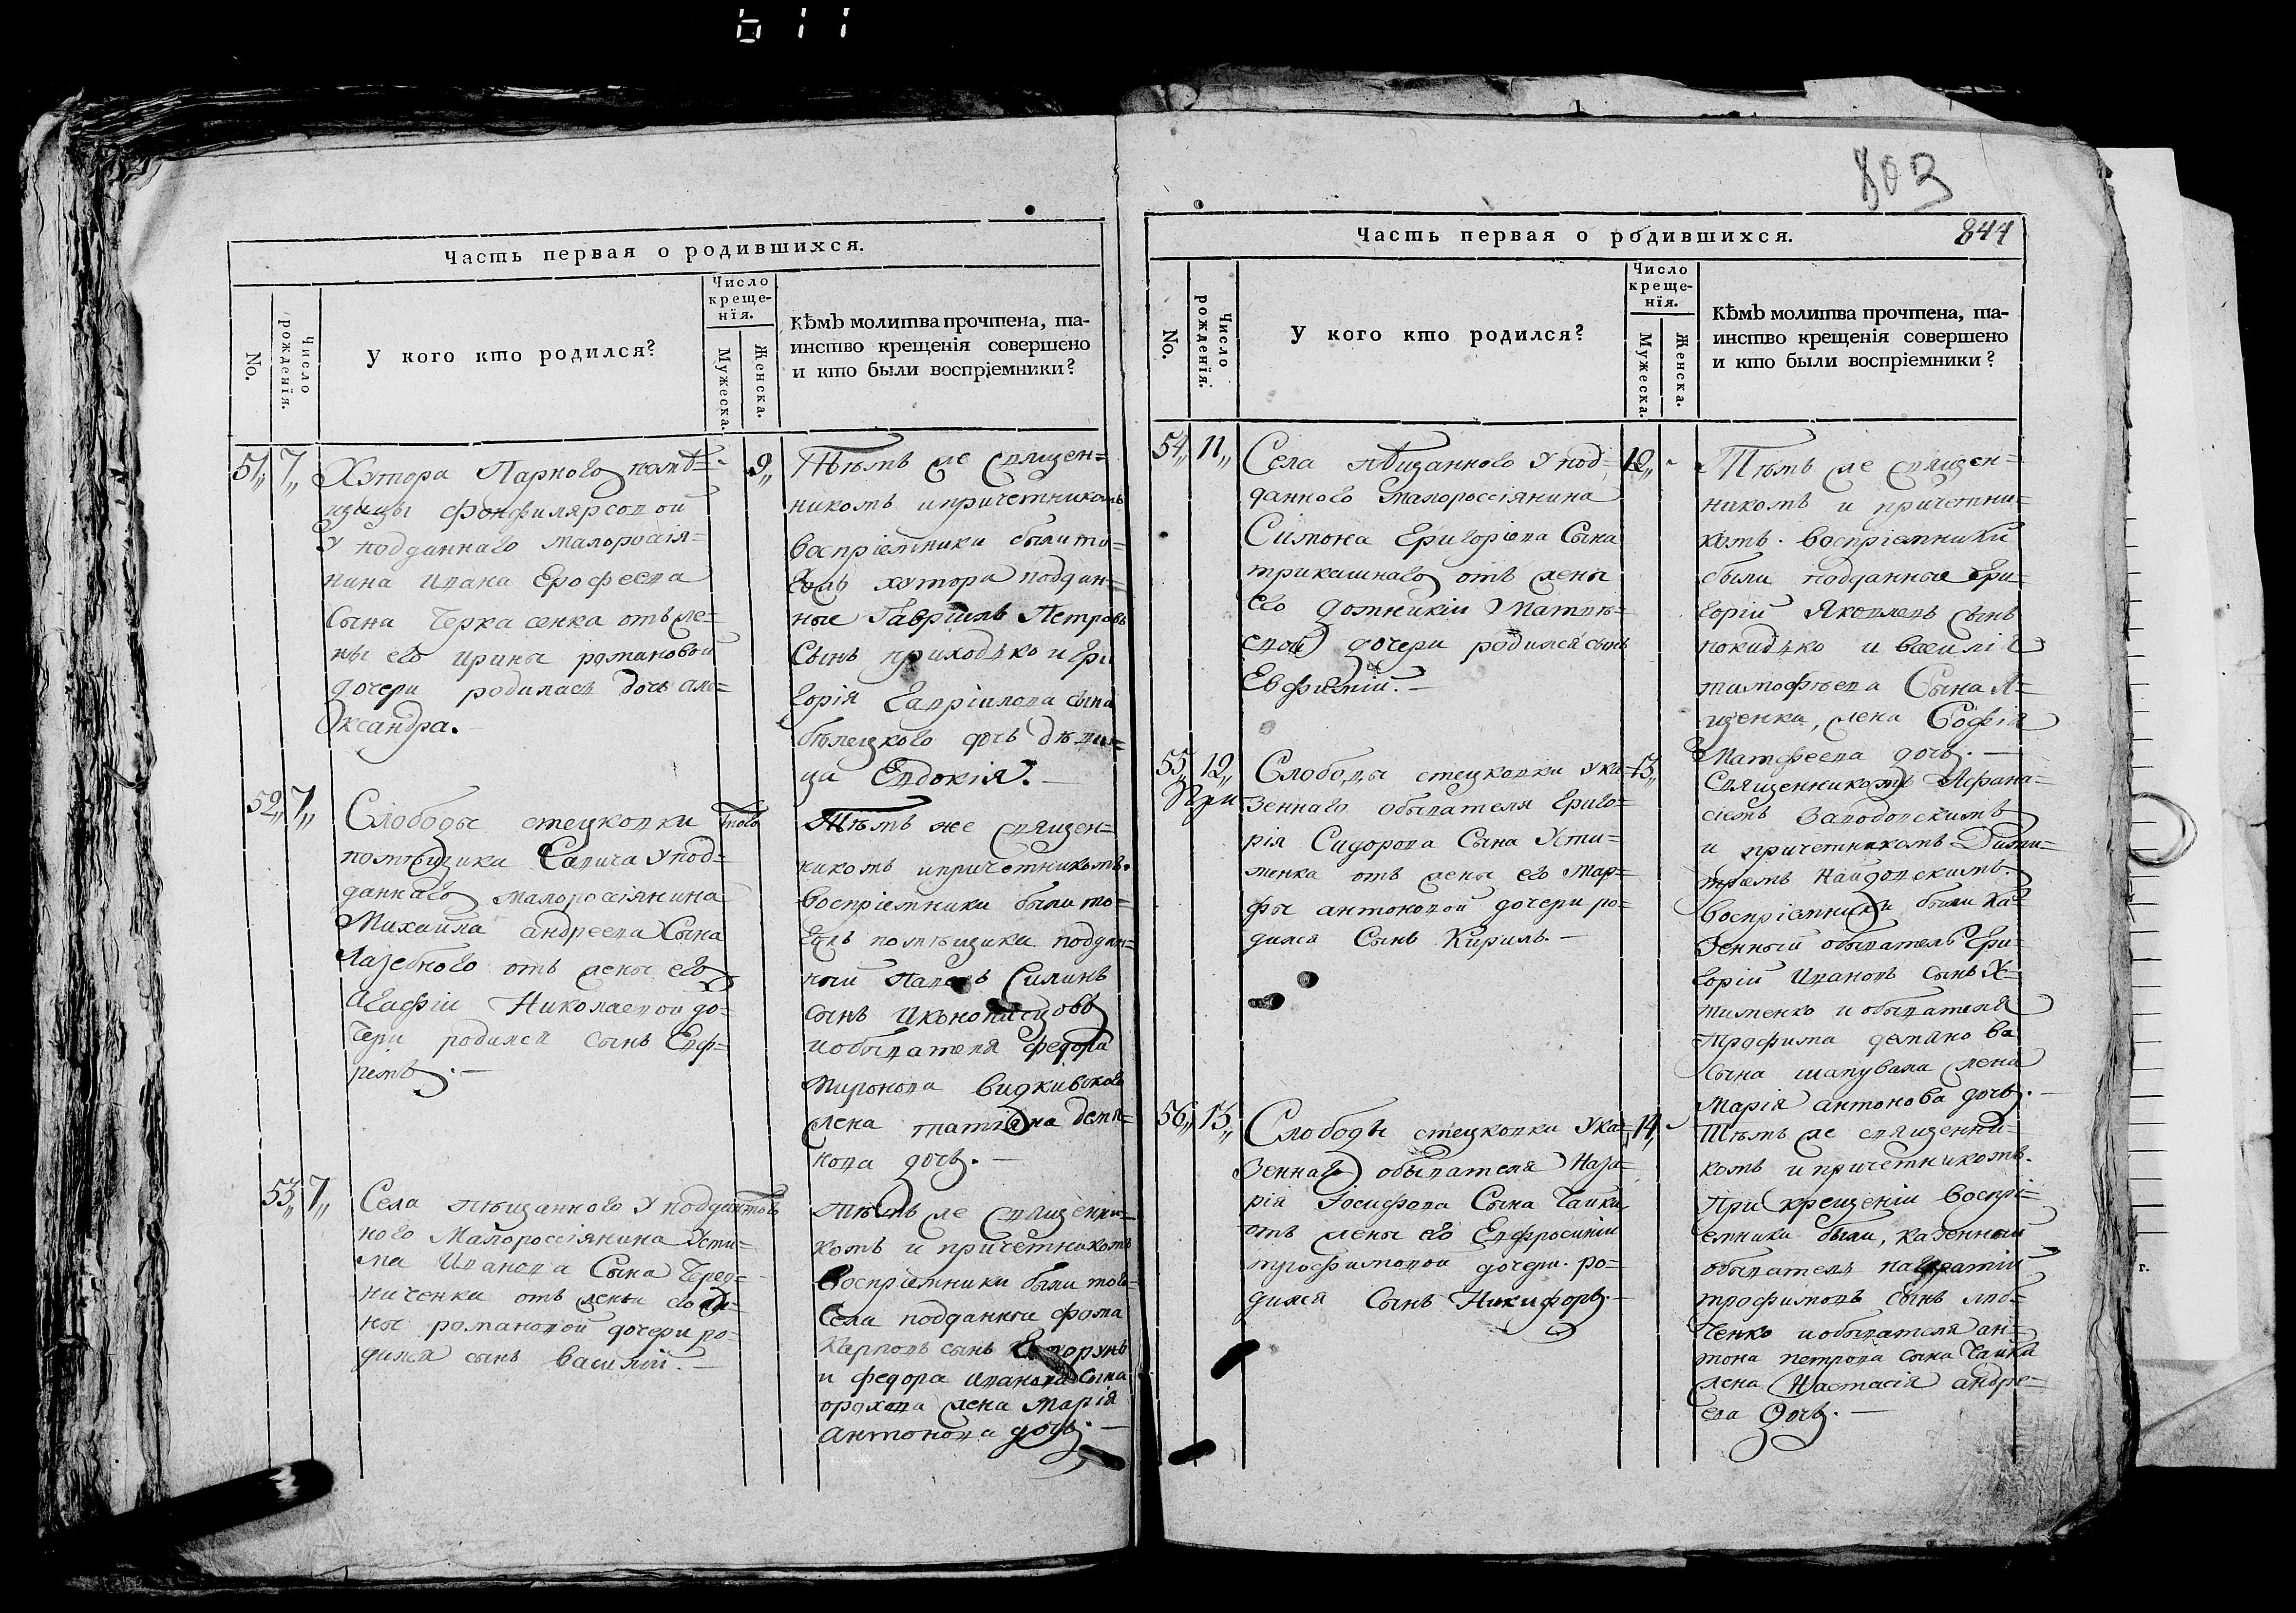 611
803
Часть первая о родившихся.
No.
Число рожденїя.
У кого кто родился?
Число
креще-
нїя.
Мужеска.
Женска.
Кѣмъ молитва прочтена, та-
инство крещенія совершено
и кто были воспріемники?
51„ 7„
Хутора Парного помѣ=
щицы
у подданнаго малоросія=
нина Ивана Ерофеева
Сына Черкасенка отъ же=
ны его Ирины романовой
дочери родилась дочь Але=
ксандра.
9„
Тѣмъ же Священ=
никомъ и причетникомъ
воспріемники были то=
гожъ хутора поддан=
ные Гавріилъ Петровъ
Сынъ приходько и Гри
горія Гавріилова сына
бѣлецкого дочь дѣви=
ца Евдокія.
52„ 7„
Слободы стецковки
помѣщика Савича у под=
даннаго малоросіянина
Михайла андреева Сына
Лазебного отъ жены его
Агафіи Николаевой до=
чери родился сынъ Евф=
ремъ.
того
Тѣмъ же Священ=
никомъ и причетникомъ.
воспріемники были то=
гожъ помѣщика поддан=
ный Павелъ Силинъ
сынъ
и обывателя федора
миронова
жена татіяна деми=
нова дочь.
53„ 7„
Села пѣщанного у поддан
ного Малоросіянина Усти=
ма Иванова Сына Черед=
ниченки отъ жены его
ны романовой дочери ро=
дился сынъ василій.
тогъ
Тѣмъ же Священни=
комъ и причетникомъ
Воспріемники были того
Села подданныи фома
Карповъ сынъ
и федора Иванова Сына
орахова жена Марія
Антонова дочь.
Часть первая о родившихся.
844
No.
Число рожденїя.
У кого кто родился?
Число
креще-
нїя.
Мужеска.
Женска.
Кѣмъ молитва прочтена, та-
инство крещенія совершено
и кто были воспріемники?
54„ 11„
Села пѣщанного у под=
данного малороссіянина
Симона Григоріева Сына
трикашнаго отъ жены
его домникіи Матвѣ=
евой дочери родился сынъ
Евфимій.
12„
Тѣмъ же Священ=
никомъ и причетни=
комъ. воспріемники
были подданные Гри=
горій Яковлевъ сынъ
покидько и василія
тимофѣева Сына Л=
щенка, жена Софія
Матфеева дочь.
55„ 12„
Слободы стецковки у ка=
зеннаго обывателя Григо=
рія Сидорова Сына Усти=
менка отъ жены его Мар=
фы антоновой дочери ро=
дился Сынъ Кирилъ.
13„
Священникомъ Афана=
сіемъ Заводовскимъ
и причетникомъ Дими=
тріемъ Найдовскимъ.
воспріемники были Ка=
зенный обыватель Гри=
горій Ивановъ сынъ
и обывателя
трофима демяно ва
сына шаповала жена
Марія антонова дочь.
56„ 13„
Слободы стецковки у ка=
зеннаго обывателя Наза=
рія Іосифова Сына Чайки
отъ жены его Евфросиніи
трофимовой дочери. ро=
дился Сынъ Никифоръ.
14„
Тѣмъ же священни=
комъ и причетникомъ.
При крещеніи воспрі=
емники были, казенный
обыватель
трофимовъ сынъ
ченко и обывателя ан=
тона петрова сына Чайки
жена Настасія андре=
ева дочь.